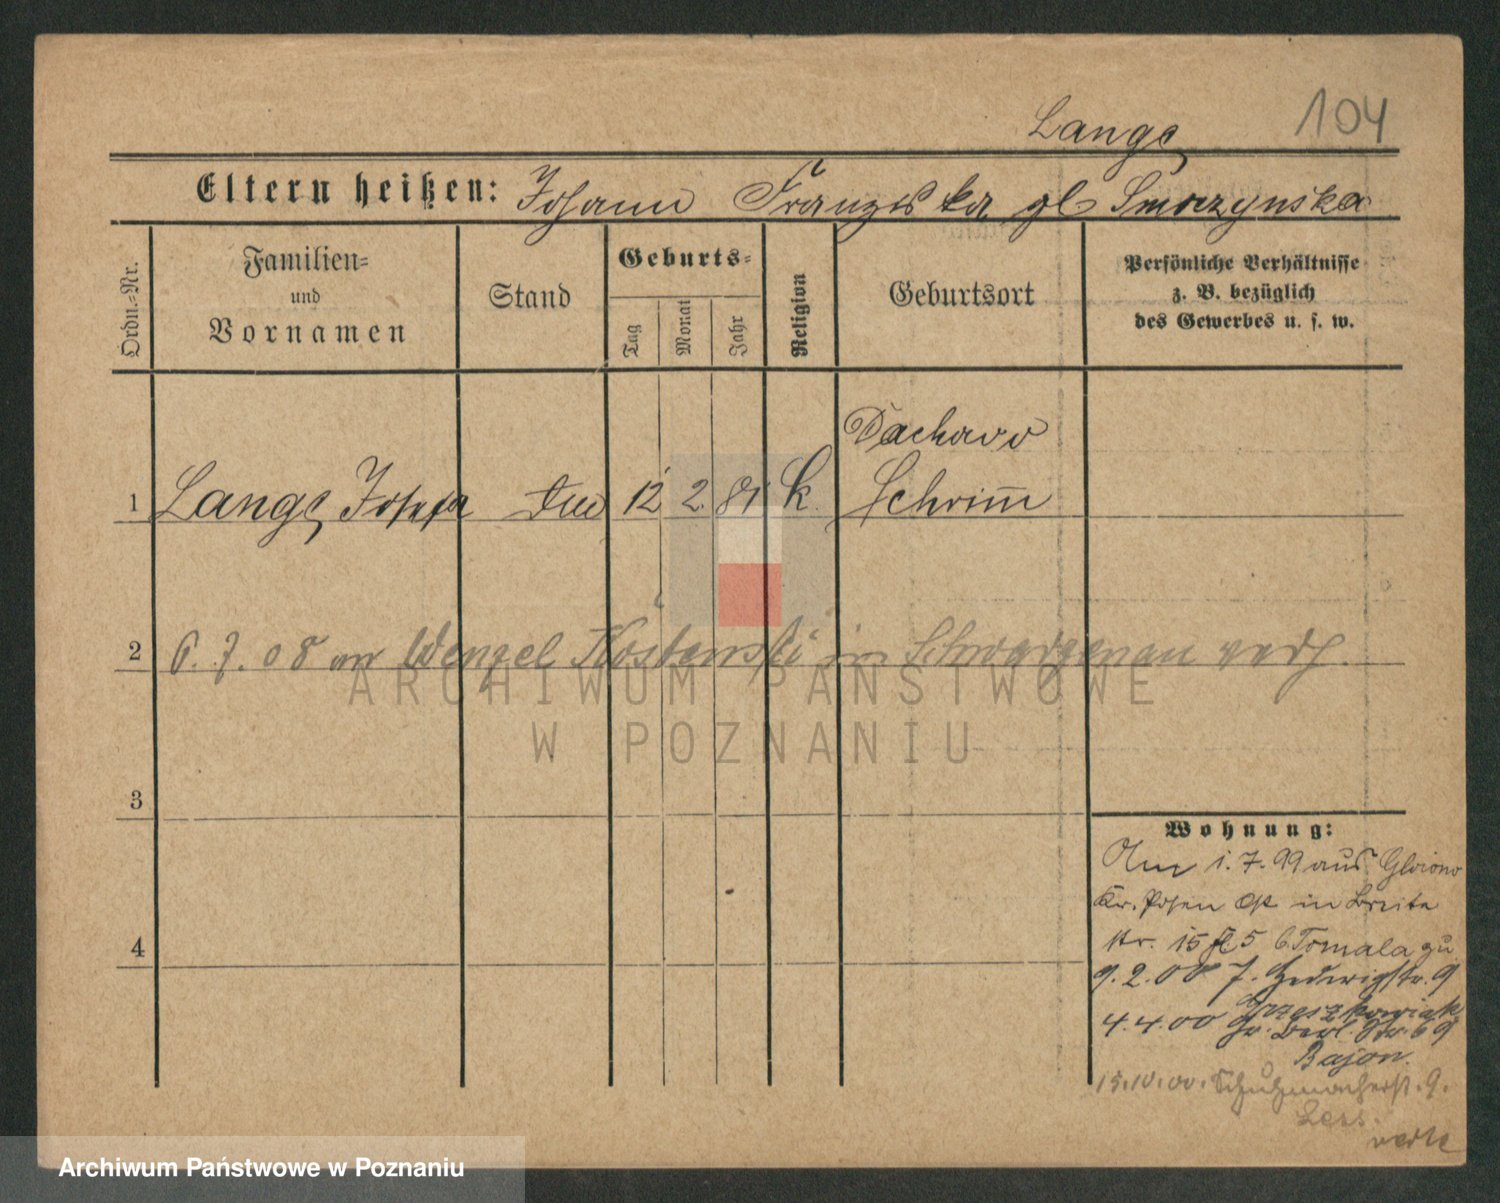 104
Lange
Eltern heißen: Johann Franziska gb Smoczynska
Ordn.-Nr.
Familien-
und
Vornamen
Stand
Geburts-
Tag
Monat
Jahr
Religion
Geburtsort
Persönliche Verhältnisse
z. B. bezüglich
des Gewerbes u. s. w.
Dachowo
1 Lange Josefa 12 2. 81 k. Schrimm
2 6. 7. 08 an Wenzel in Schwarzenau verh.
ARCHIWUM PAŃSTWOWE
W POZNANIU
3
4
Wohnung:
Am 1. 7. 99 aus
Kr. Posen Ost in Breite
str. 15 b. Tomala zu
9. 2. 00 Hedwigstr. 9
Grzeszkowiak
4. 4. 00 Gr. Berl. Str. 69
Bajon.
15. 10. 00. Schuhmacherst. 9.
Less.
verte
Archiwum Państwowe w Poznaniu